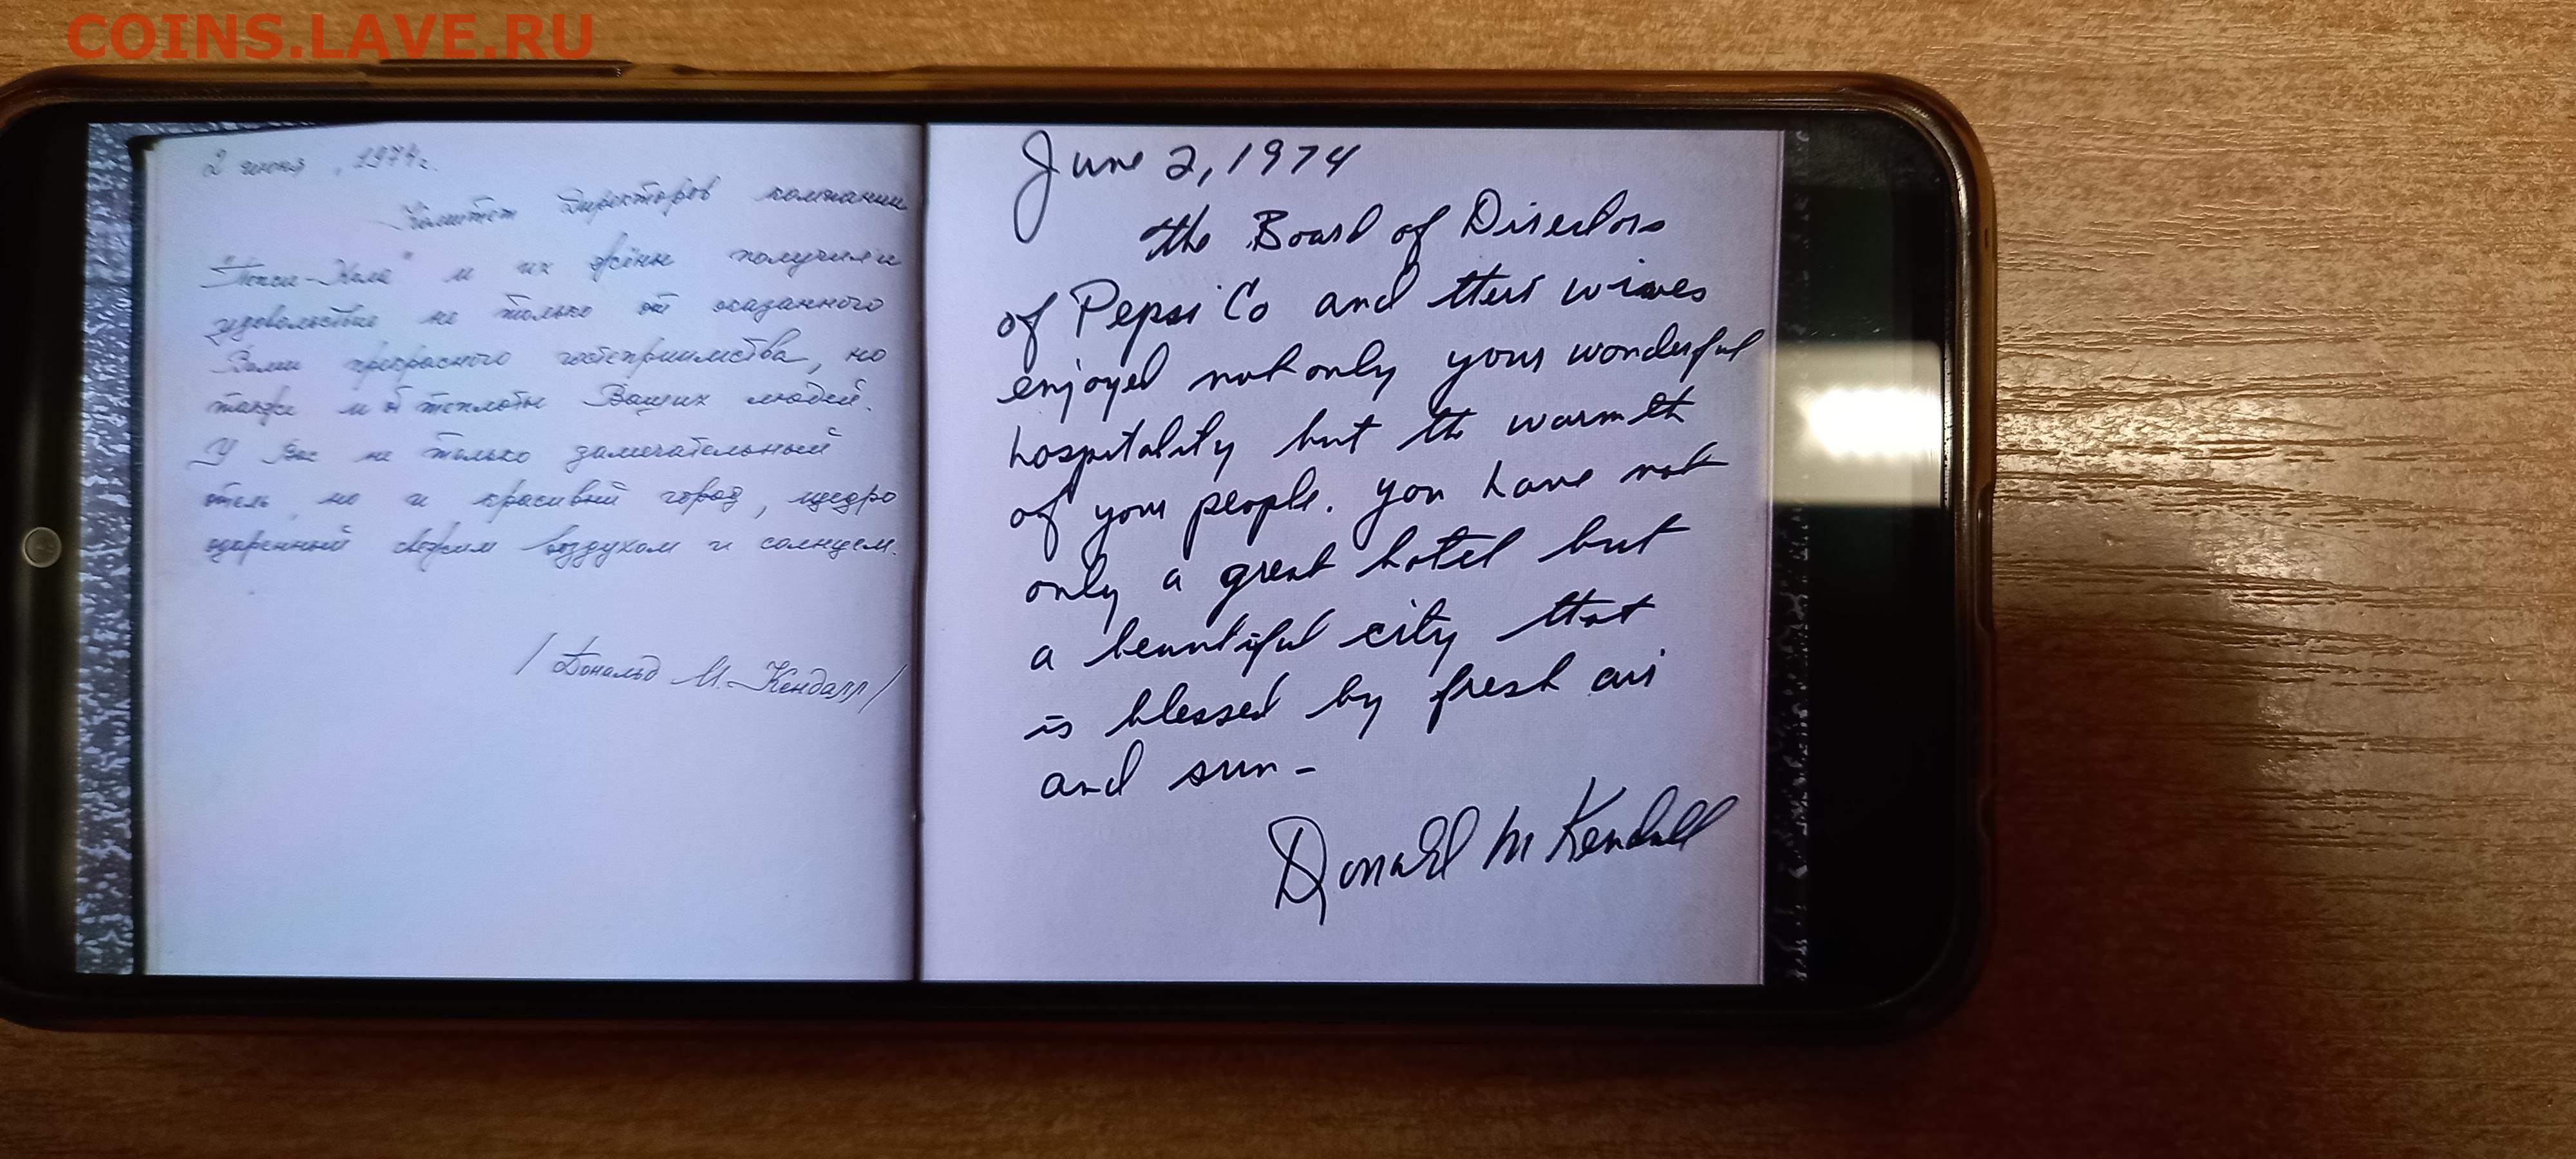 COINS.LAVE.RU
2 июня, 1974г.
Комитет Директоров компании
"Пепси-Кола" и их жёны получили
удовольствие не только от оказанного
Вами прекрасного гостеприимства, но
также и от теплоты Ваших людей.
У Вас не только замечательный
отель, но и красивый город, щедро
одаренный свежим воздухом и солнцем.
/Дональд М. Кендалл/
June 2, 1974
the Board of Directors
of PepsiCo and their wives
enjoyed not only your wonderful
hospitality but the warmth
of your people. you have not
only a great hotel but
a beautiful city that
is blessed by fresh air
and sun-
Donald M Kendall